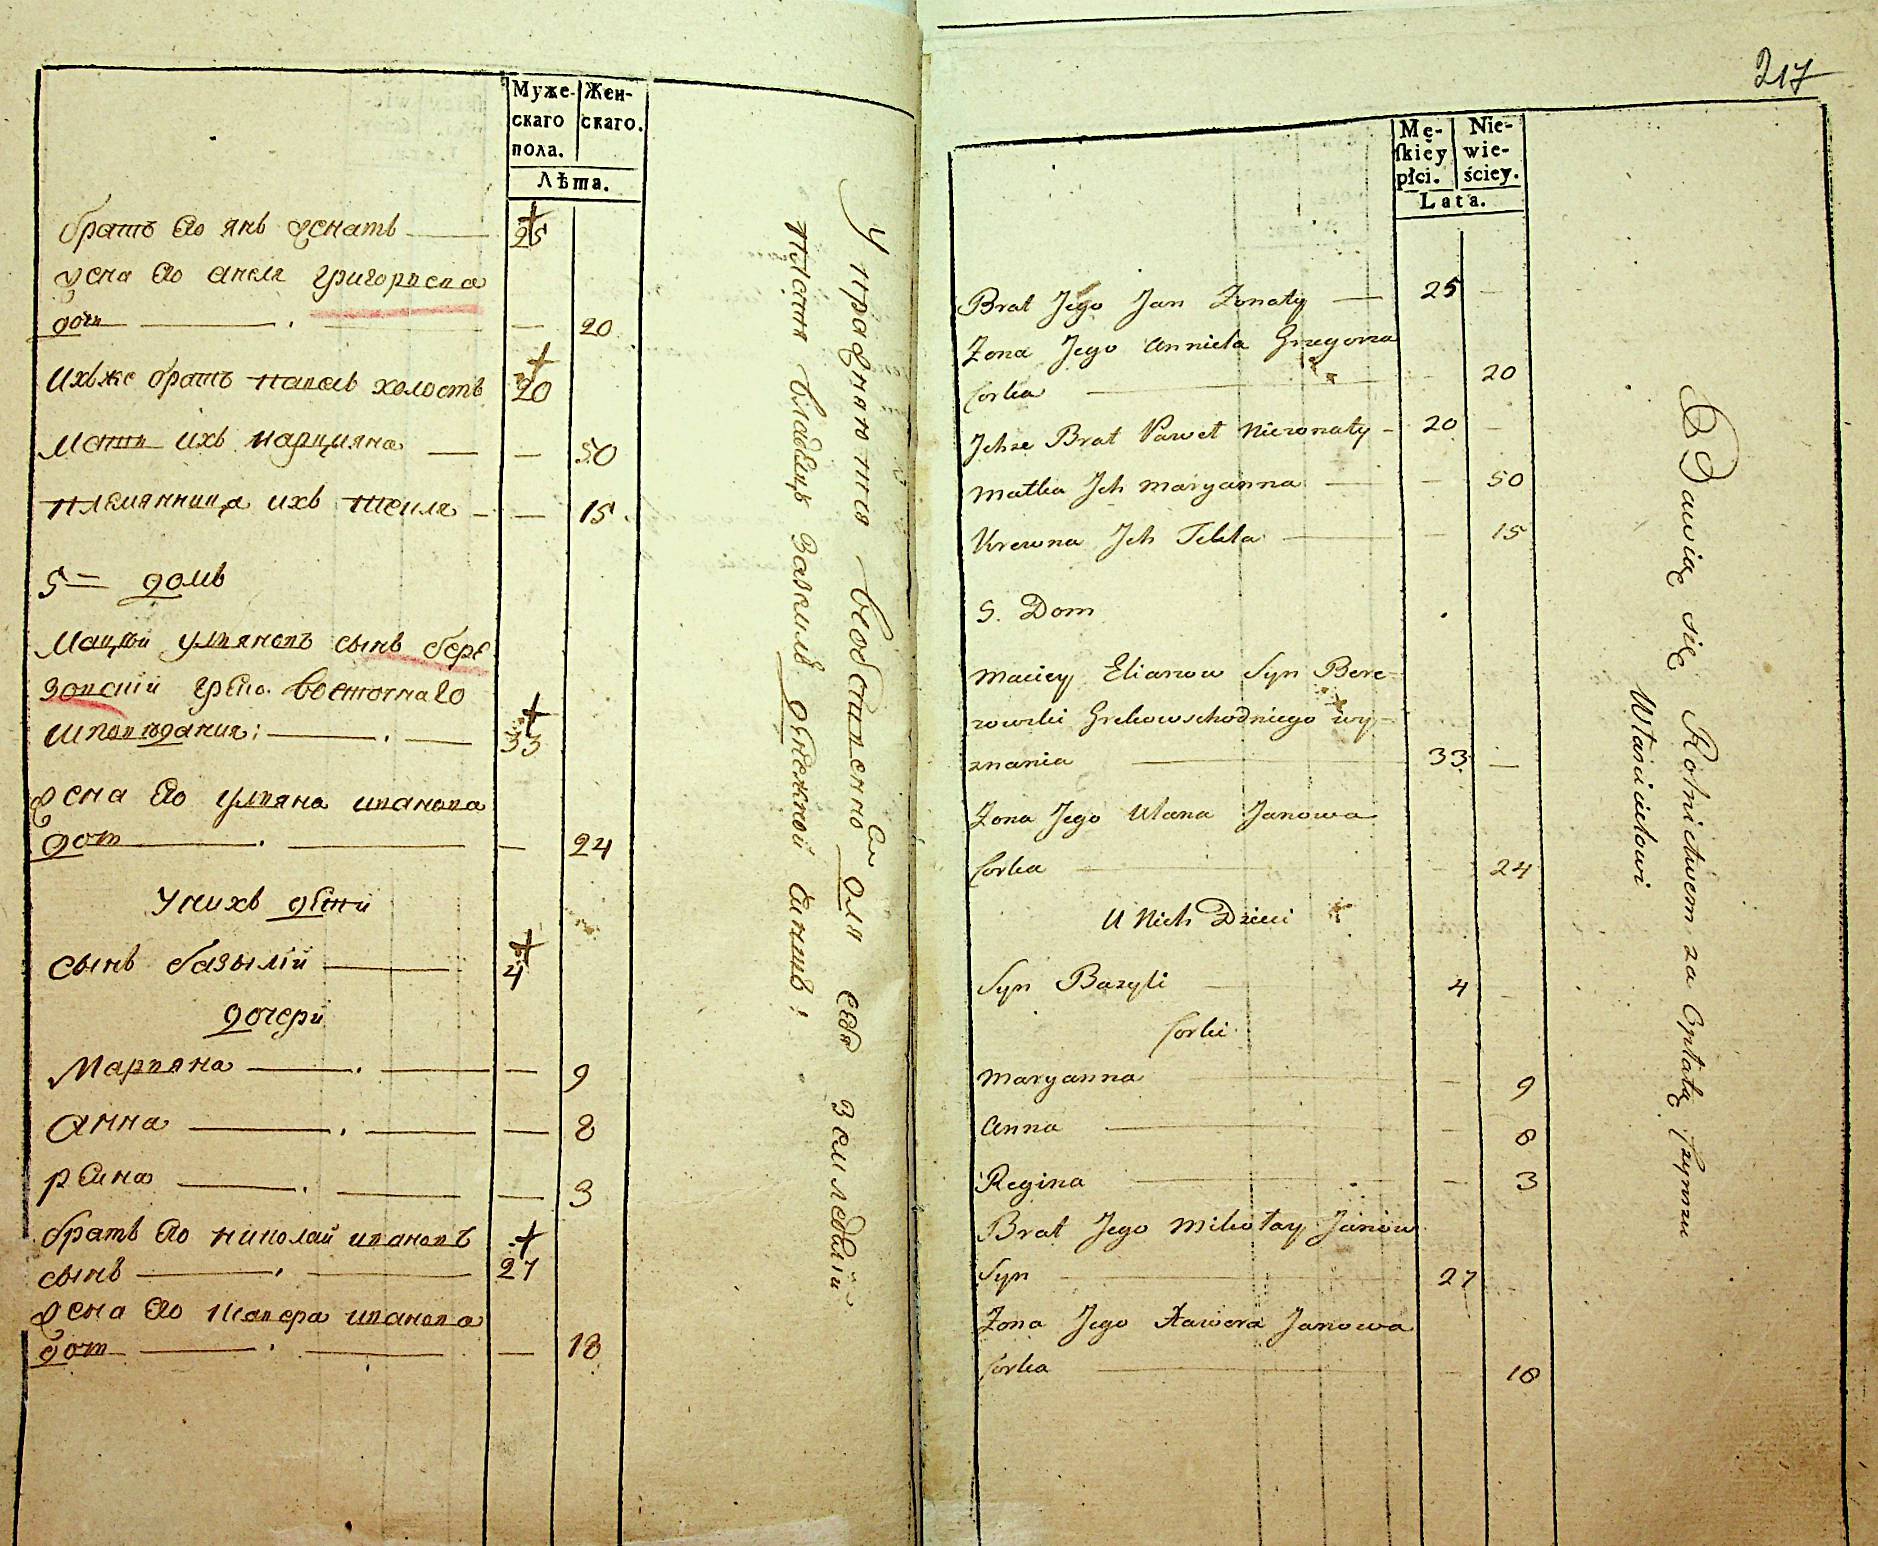 Муже-
скаго
пола.
Жен-
скаго.
Лѣта.
братъ его янъ женатъ 25
жена его анеля григорьева
доч — 20
ихъже братъ павелъ холостъ 20
мать ихъ марцияна — 50
племянница ихъ текля — 15
5 = домъ
Мацѣй ульяновъ сынъ бере
зовский греко. восточнаго
исповѣдания: 33
жена его ульяна иванова
доч — 24
У нихъ дѣти
сынъ базылій 4
дочери
Марьяна — 9
Анна — 8
регина — 3
братъ его николай ивановъ
сынъ 27
жена его ксавера иванова
доч — 18
Упражняются собственно для себя земледелiи
платя владельцу денежной чиншъ:
217
Mę-
skiéy
płci.
Nie-
wie-
ściey.
Lata.
Brat Jego Jan Żonaty — 25 —
Żona Jego Anniela Grzegorza
Corka — 20
Ichże Brat Paweł Nieżonaty - 20 -
Matka Jch Maryanna — 50
Krewna Jch Tekla — 15
5. Dom
Maciey Elianow Syn Bere-
zowski Grekowschodniego wy-
znania — 33 —
Żona Jego Ulana Janowa
Corka — 24
U Nich Dzieci
Syn Bazyli 4
Corki
Maryanna — 9
Anna — 8
Regina — 3
Brat Jego Mikołay Janów
Syn — 27
Żona Jego Xawera Janowa
Corka — 18
Bawią się Rolnictwem za Opłatą Czynszu
Właścicielowi